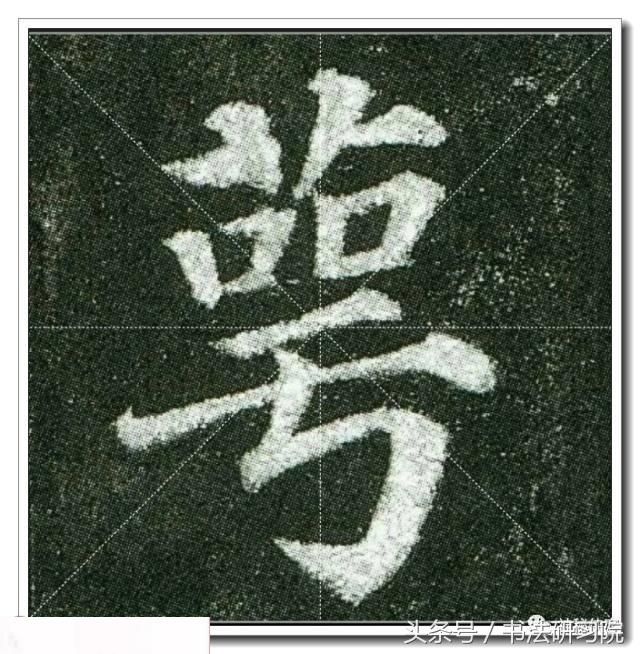 萼
头条号 / 书法研习院